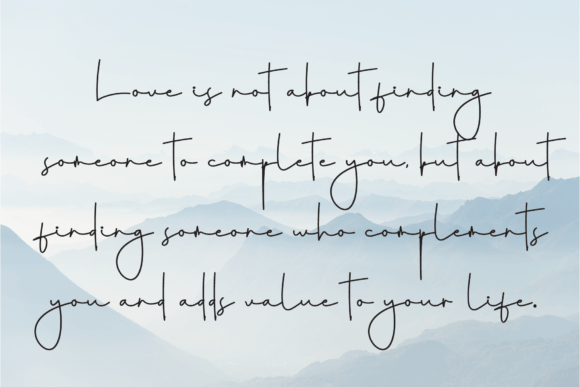 Love is not about finding
someone to complete you, but about
finding someone who complements
you and adds value to your life.